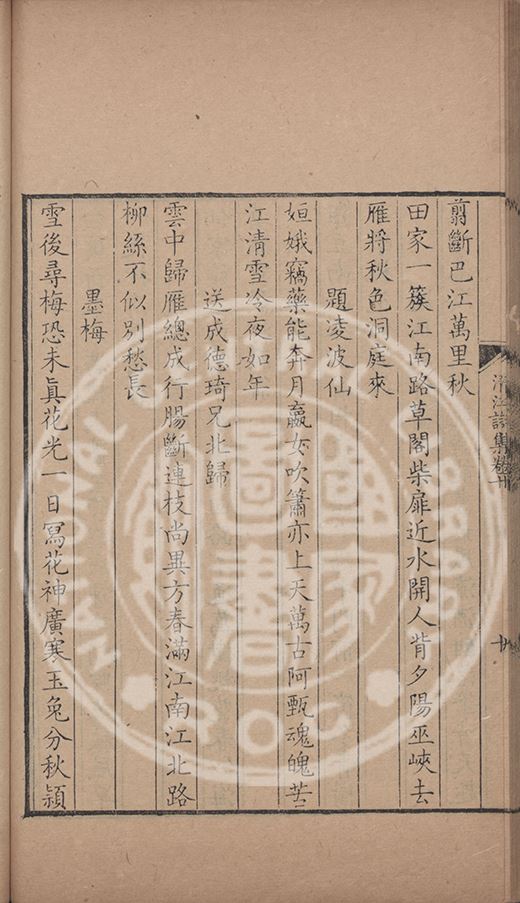 翦斷巴江萬里秋
田家一簇江南路草閣柴扉近水開人背夕陽巫峽去
雁將秋色洞庭來
題凌波仙
姮娥竊藥能奔月嬴女吹簫亦上天萬古阿甄魂魄苦
江清雪冷夜如年
送成德琦兄北歸
雲中歸雁總成行腸斷連枝尚異方春滿江南江北路
柳絲不似別愁長
墨梅
雪後尋梅恐未眞花光一日寫花神廣寒玉兔分秋穎
詩集卷十
國家圖書
NATIONAL